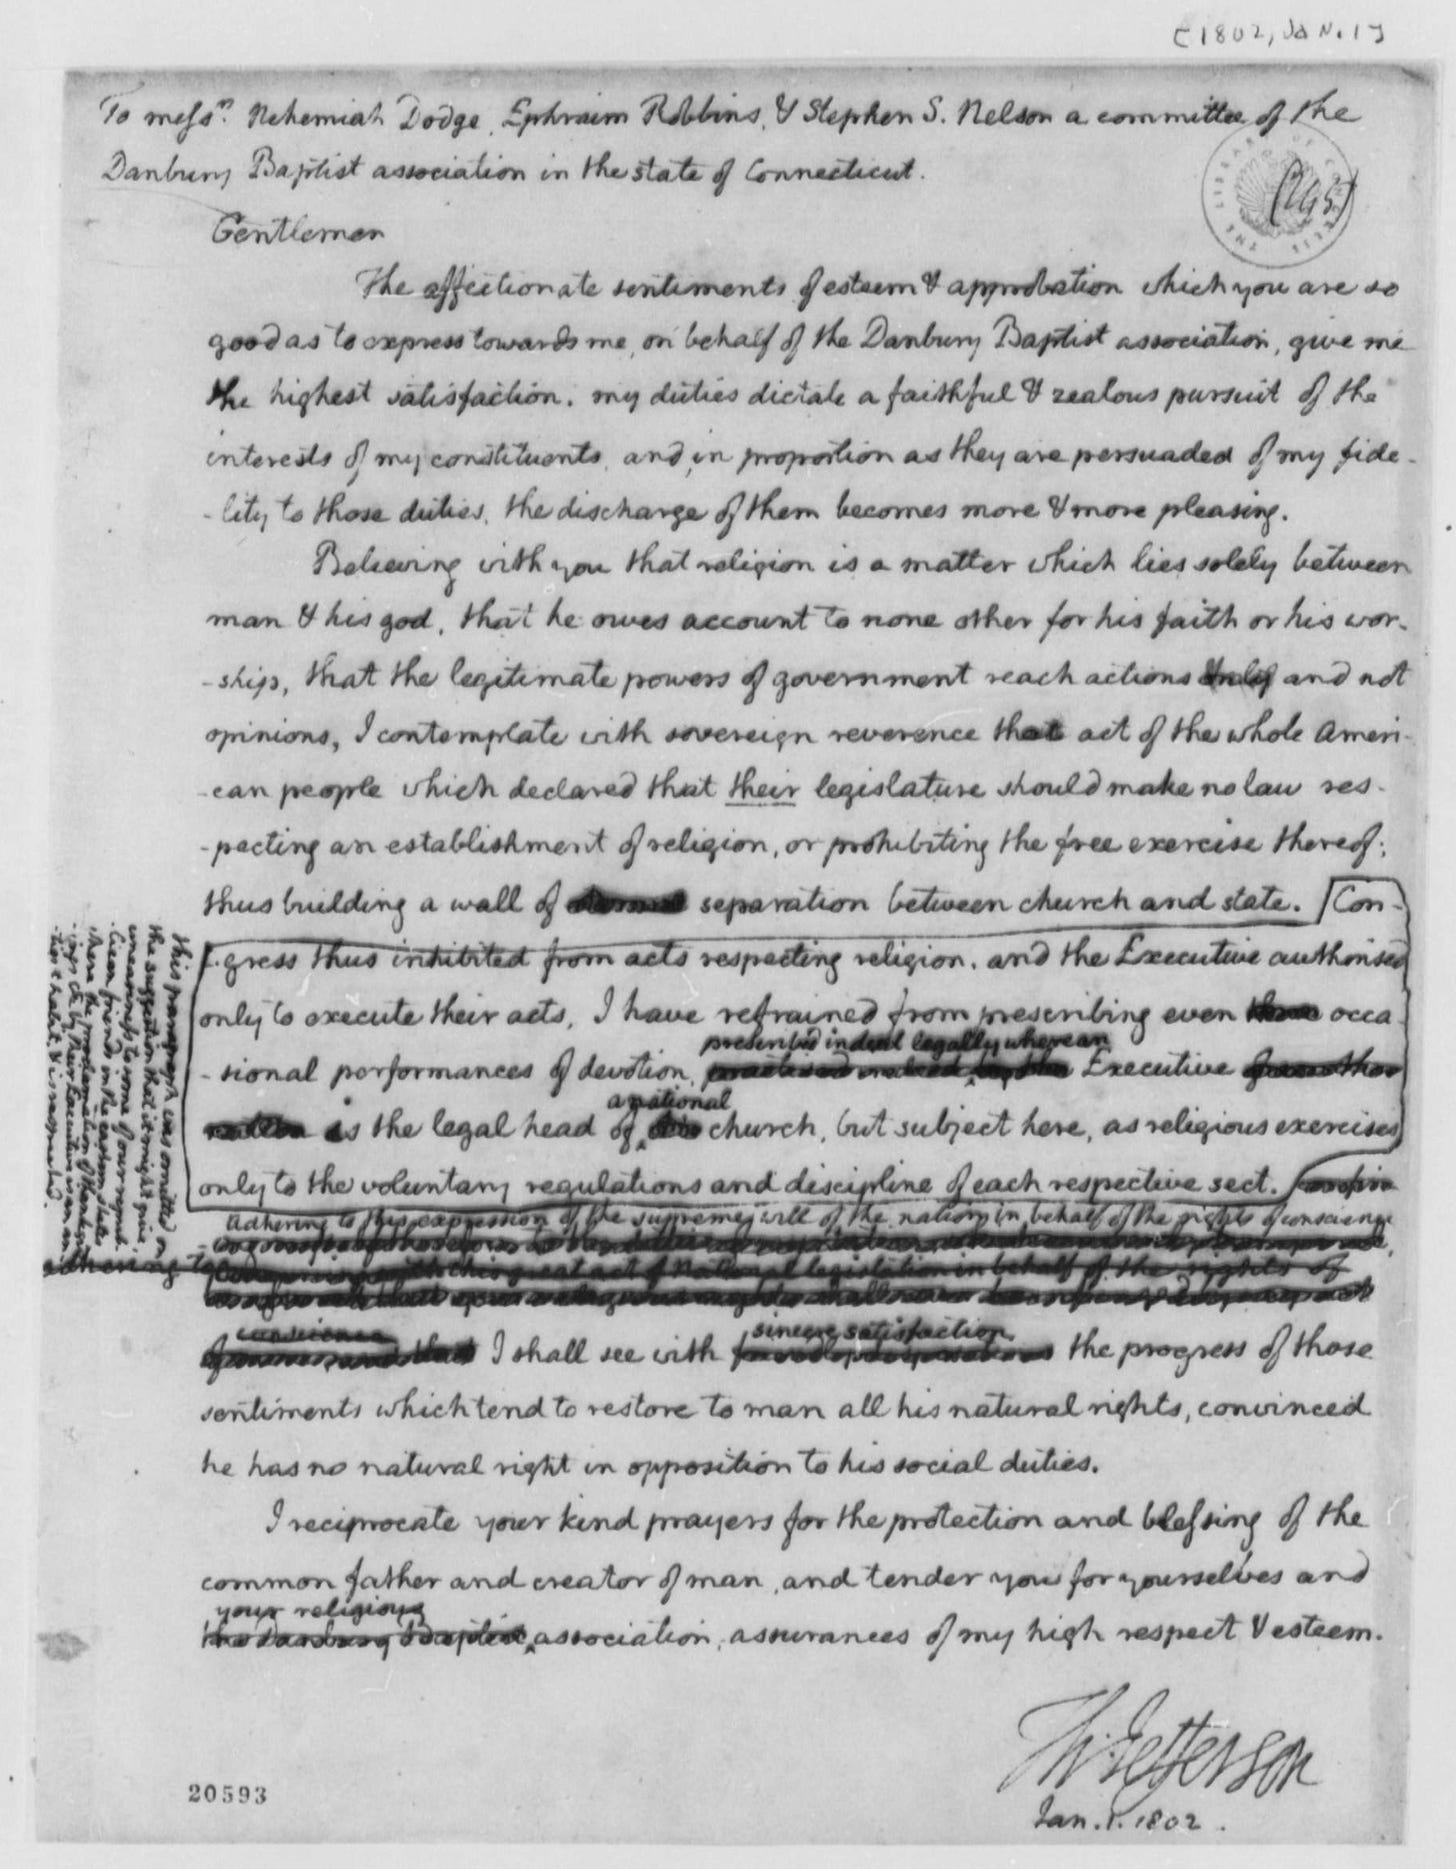 [1802, Jan. 1]
To messrs. Nehemiah Dodge, Ephraim Robbins, & Stephen S. Nelson a committee of the
Danbury Baptist association in the state of Connecticut.
THE LIBRARY OF CONGRESS
Gentlemen
The affectionate sentiments of esteem & approbation which you are so
good as to express towards me, on behalf of the Danbury Baptist association, give me
the highest satisfaction. my duties dictate a faithful & zealous pursuit of the
interests of my constituents, and in proportion as they are persuaded of my fide-
-lity to those duties, the discharge of them becomes more & more pleasing.
Believing with you that religion is a matter which lies solely between
man & his god, that he owes account to none other for his faith or his wor-
-ship, that the legitimate powers of government reach actions only and not
opinions, I contemplate with sovereign reverence that act of the whole Ameri-
-can people which declared that their legislature should make no law res-
-pecting an establishment of religion, or prohibiting the free exercise thereof;
thus building a wall of separation between church and state. [Con-
-gress thus inhibited from acts respecting religion, and the Executive authorised
only to execute their acts, I have refrained from prescribing even occa-
prescribed indeed legally where an
-sional performances of devotion, Executive
a national
is the legal head of church, but subject here, as religious exercises
only to the voluntary regulations and discipline of each respective sect.
adhering to this expression of the supreme will of the nation in behalf of the rights of conscience
this great act of national legislation in behalf of the rights of
conscience sincere satisfaction
I shall see with the progress of those
sentiments which tend to restore to man all his natural rights, convinced
he has no natural right in opposition to his social duties.
I reciprocate your kind prayers for the protection and blessing of the
common father and creator of man, and tender you for yourselves and
your religious
the Danbury Baptist association, assurances of my high respect & esteem.
Th: Jefferson
Jan. 1. 1802.
20593
this paragraph was omitted on
the suggestion that it might give
uneasiness to some of our repub-
-lican friends in the eastern states
where the proclamation of thanksgi-
-vings &c by their Executive is an
-tient habit, & is respected.
adhering to